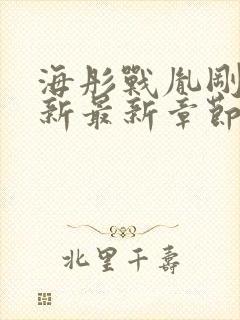 海彤戰胤剛
新最新章節
北里千壽